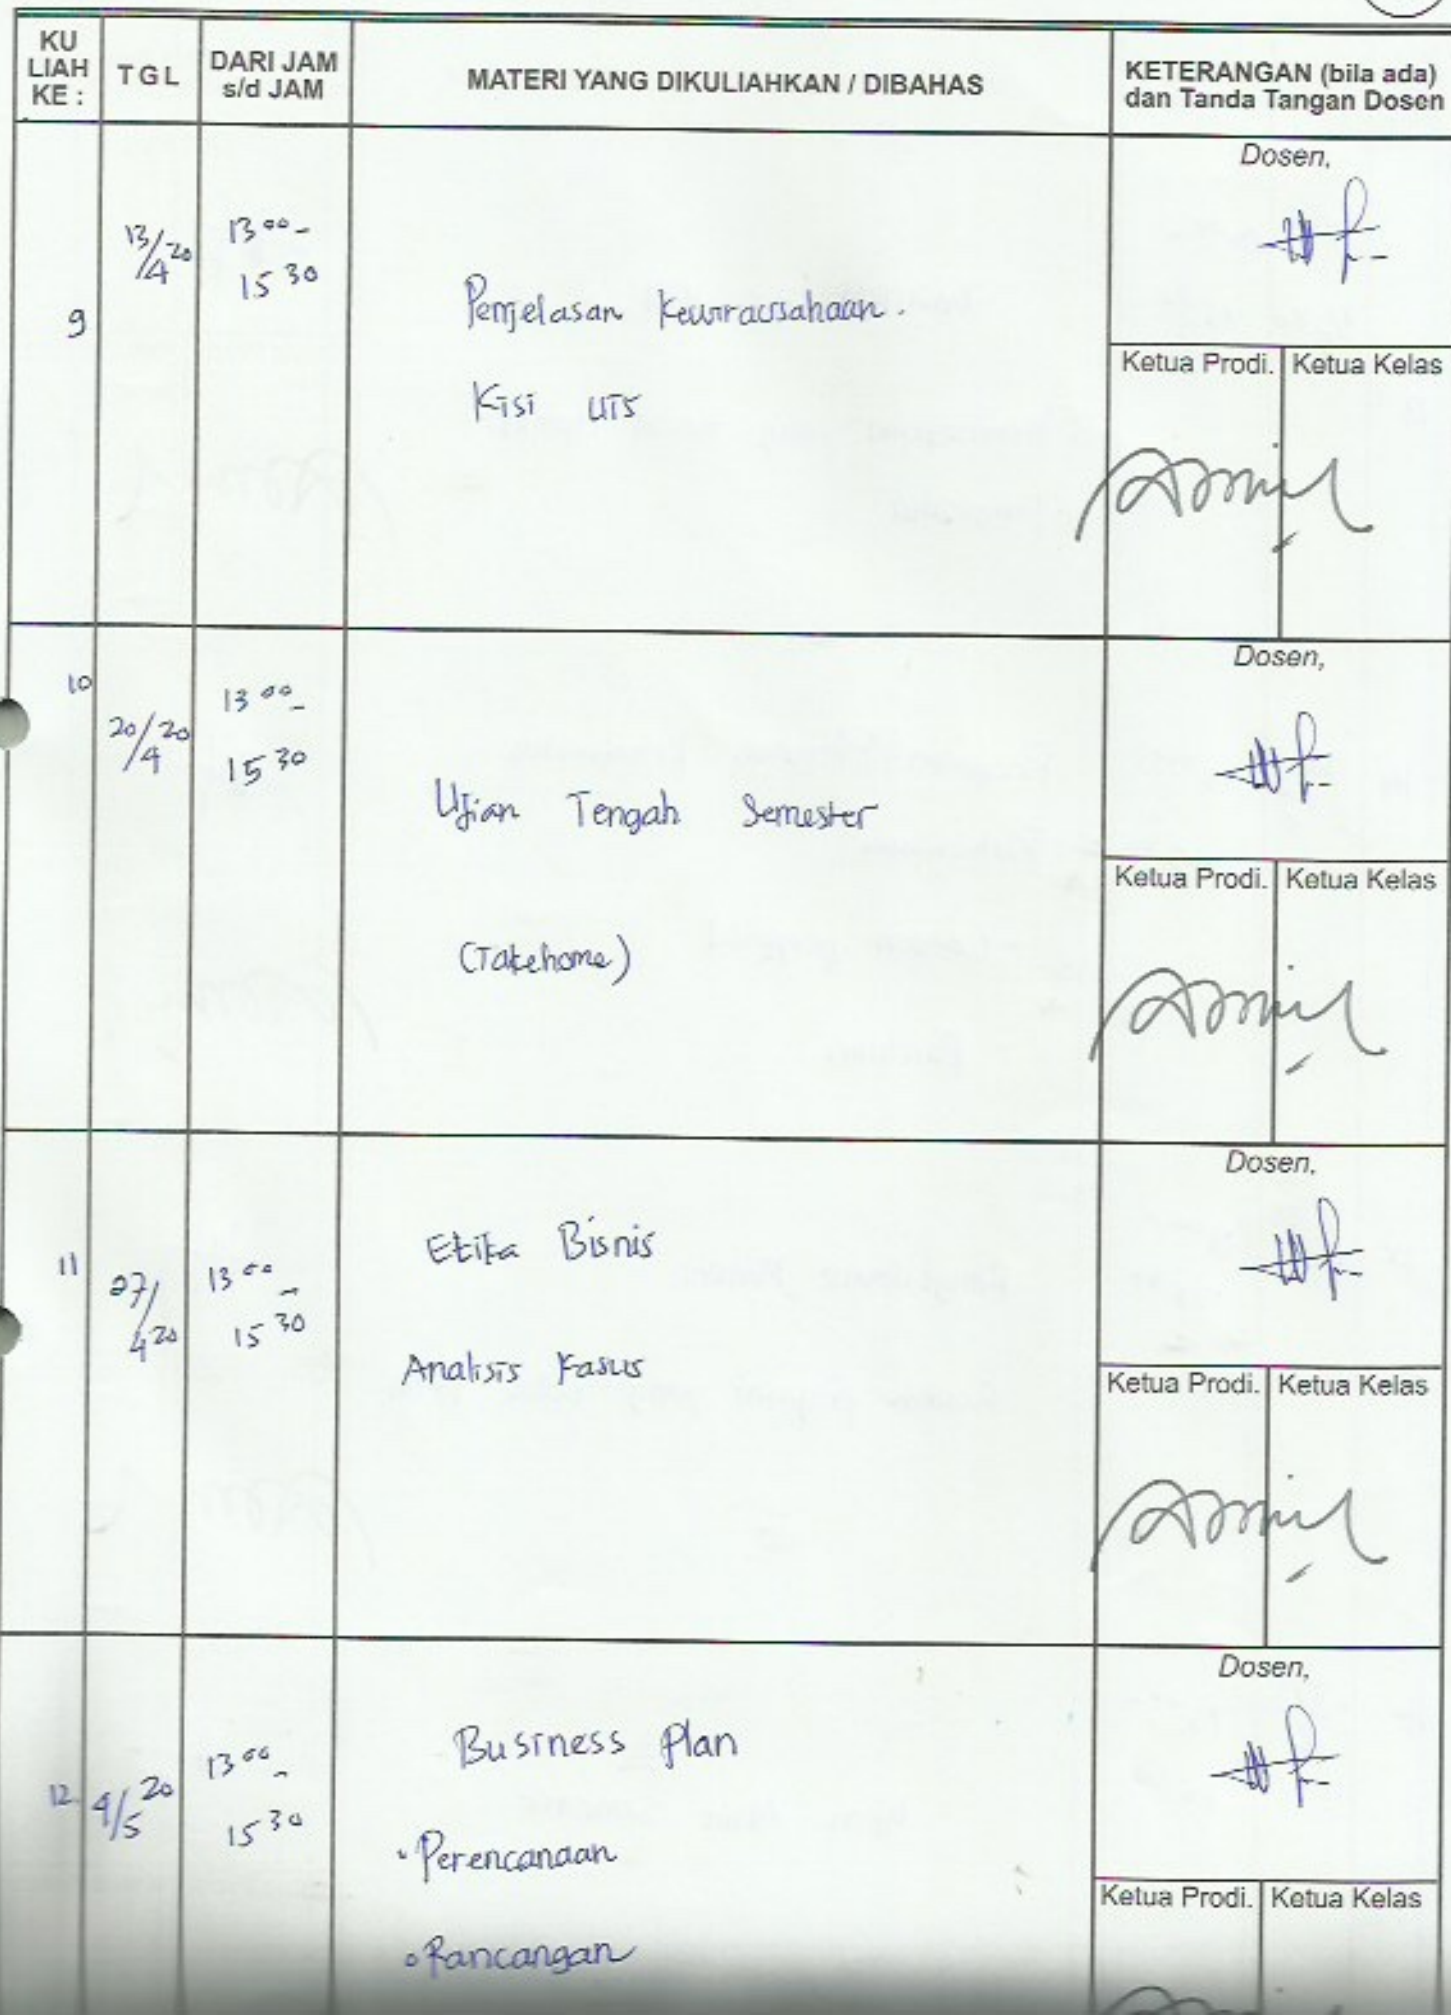 KU
LIAH
KE :
TGL
DARI JAM
s/d JAM
MATERI YANG DIKULIAHKAN / DIBAHAS
KETERANGAN (bila ada)
dan Tanda Tangan Dosen
9
13/4 20
13 00 -
15 30
Penjelasan Kewirausahaan.
Kisi UTS
Dosen,
Ketua Prodi.
Ketua Kelas
10
20/4 20
13 00 -
15 30
Ujian Tengah Semester
(Takehome)
Dosen,
Ketua Prodi.
Ketua Kelas
11
27/4 20
13 00 -
15 30
Etika Bisnis
Analisis Kasus
Dosen,
Ketua Prodi.
Ketua Kelas
12
4/5 20
13 00 -
15 30
Business Plan
• Perencanaan
• Rancangan
Dosen,
Ketua Prodi.
Ketua Kelas